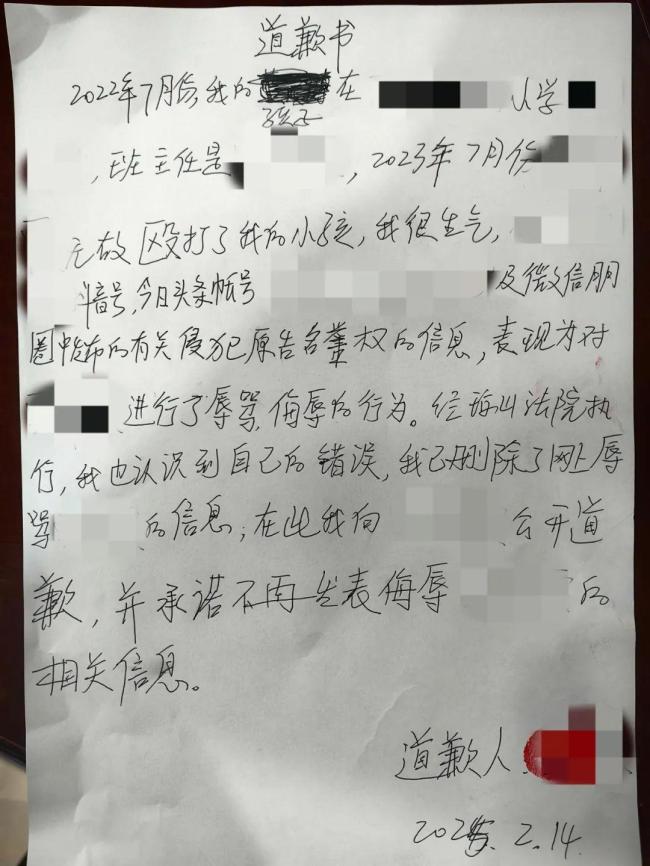 道歉书
2022年7月份,我的 在 小学
孩子
,班主任是 ,2023年7月份
无故殴打了我的小孩,我很生气,
抖音号,今日头条帐号 及微信朋
圈中发布的有关侵犯原告名誉权的信息,表现为对
进行了辱骂,侮辱的行为。经 法院执
行,我也认识到自己的错误,我已删除了网上辱
骂 的信息,在此我向 公开道
歉,并承诺不再发表侮辱 的
相关信息。
道歉人
2025.2.14